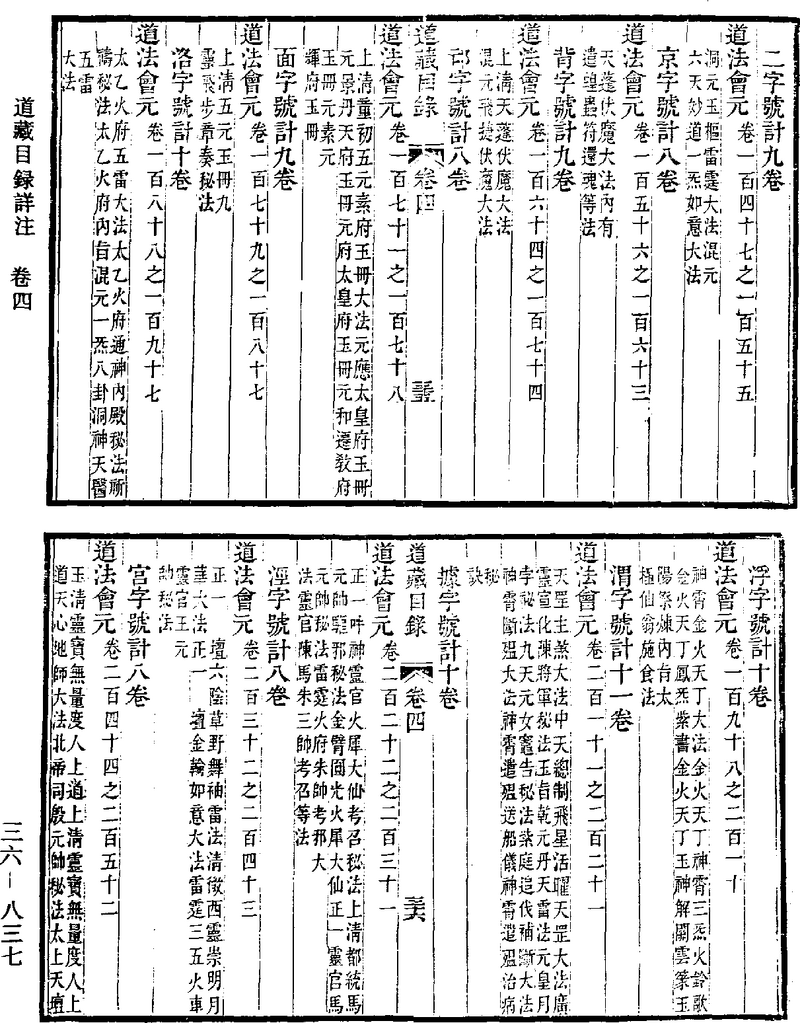 二字號計九卷
道法會元 卷一百四十七之一百五十五
洞元玉樞雷霆大法混元
六天妙道一炁如意大法
京字號計八卷
道法會元 卷一百五十六之一百六十三
天蓬伏魔大法內有
遣蝗蟲符還魂等法
背字號計九卷
道法會元 卷一百六十四之一百七十四
上清天蓬伏魔大法
混元飛捷伏魔大法
邙字號計八卷
道藏目錄 卷四
道法會元 卷一百七十一之一百七十八
上清重初五元素府玉冊大法元應太皇府玉冊
元景丹天府玉冊元府太皇府玉冊元和遷教府
玉冊元素元
輝府玉冊
面字號計九卷
道法會元 卷一百七十九之一百八十七
上清五元玉冊九
靈飛步章奏秘法
洛字號計十卷
道法會元 卷一百八十八之一百九十七
太乙火府五雷大法太乙火府通神內殿秘法所
禱秘法太乙火府內旨混元一炁八卦洞神天醫
五雷
大法
浮字號計十卷
道法會元 卷一百九十八之二百一十
神霄金火天丁大法金火天丁神霄三炁火鈴歌
金火天丁鳳炁紫書金火天丁玉神解關雲篆玉
陽祭煉內旨太
極仙翁施食法
渭字號計十一卷
道法會元 卷二百一十一之二百二十一
天罡主煞大法中天總制飛星活曜天罡大法廣
靈宣化陳將軍秘法玉旨乾元丹天雷法元皇月
孛秘法九天元女竈告秘法紫庭追伐補斷大法
神霄斷瘟大法神霄遣瘟送船儀神霄遣瘟治病
秘
訣
據字號計十卷
道藏目錄 卷四
道法會元 卷二百二十二之二百三十一
正一吽神靈官火犀大仙考召秘法上清都統馬
元帥驅邪秘法金臂圓光火犀大仙正一靈官馬
元帥秘法雷霆火府朱帥考邪大
法靈官陳馬朱三帥考召等法
涇字號計八卷
道法會元 卷二百三十二之二百四十三
正一 壇六陰草野舞袖雷法清微西靈崇明月
華大法正一 壇金輪如意大法雷霆三五火車
靈官王元
帥秘法
宮字號計八卷
道法會元 卷二百四十四之二百五十二
玉清靈寶無量度人上道上清靈寶無量度人上
道天心地師大法北帝司殷元帥秘法太上天壇
道藏目錄詳注 卷四
三六—八三七